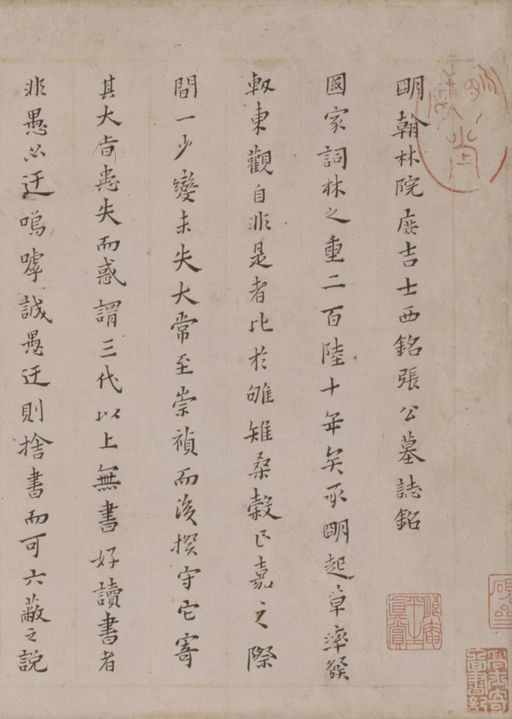 明翰林院庶吉士西銘張公墓誌銘
國家詞林之重二百陸十年矣承明起草率繇
軷東觀自非是者比於雊雉桑穀正嘉之際
間一少變未失大常至崇禎而後揆守它寄
其大耑患失而惑謂三代以上無書好讀書者
非愚必迂嗚嘑誠愚迂則捨書而可六蔽之說